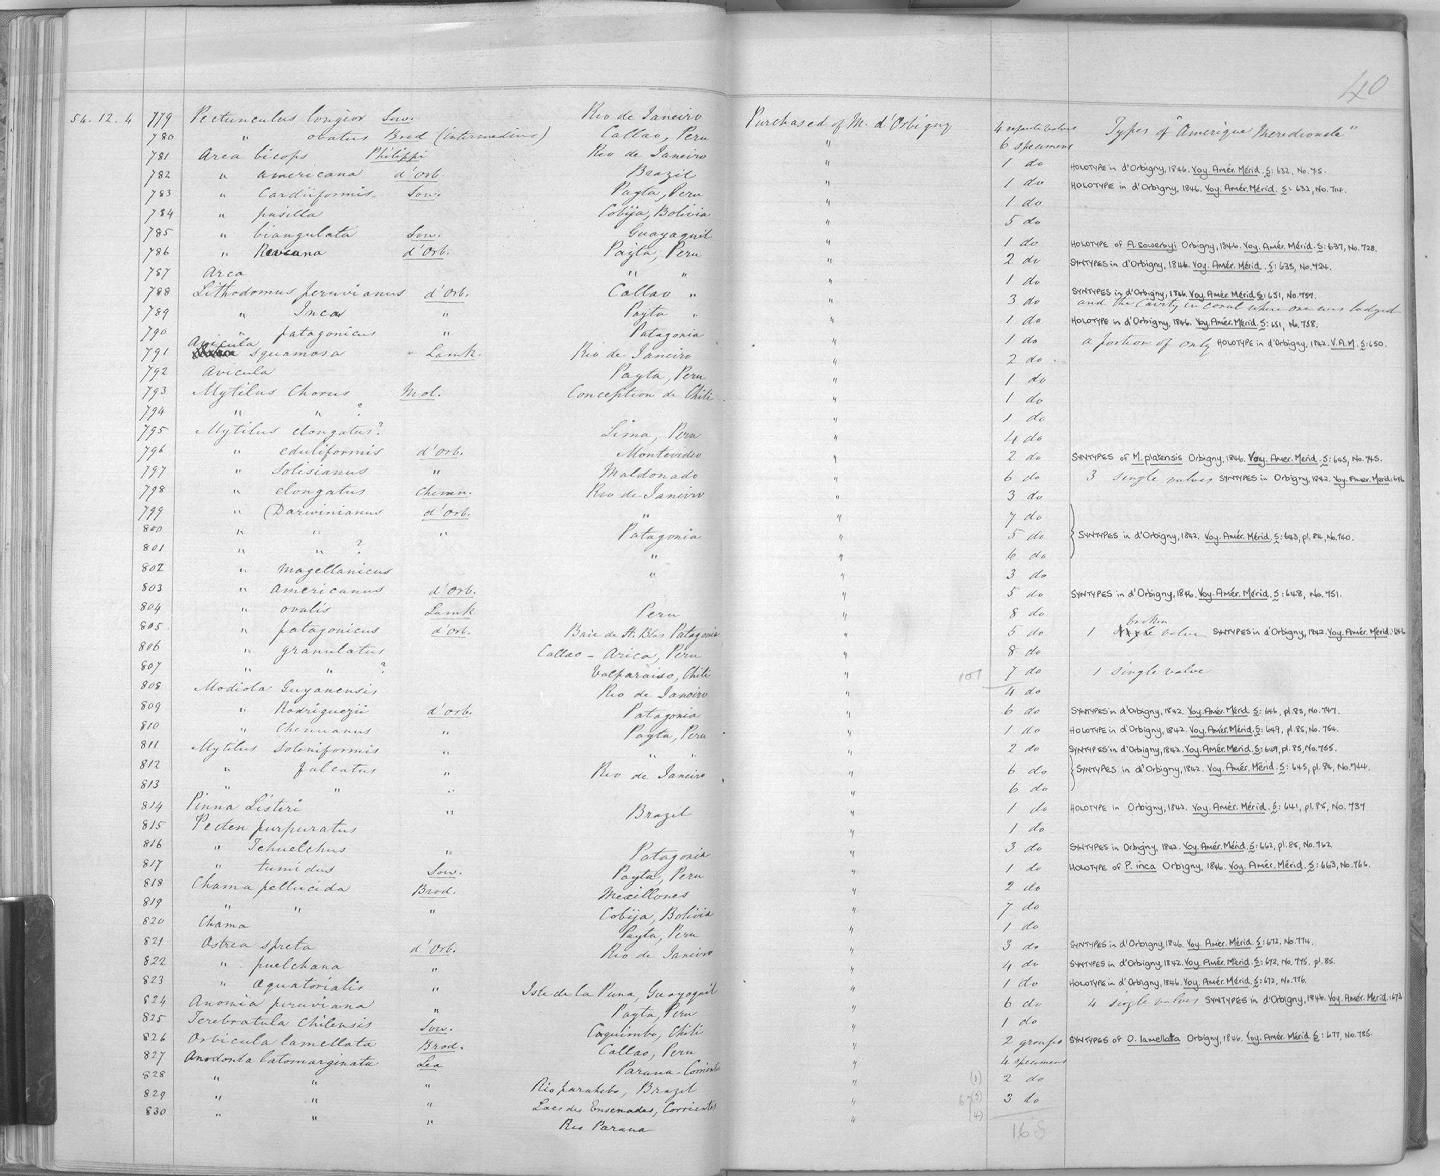 40
54.12.4 779 Pectunculus longior Sow. Rio de Janeiro Purchased of M. d'Orbigny 4 separate valves Types of "Amerique Meredionale"
780 " ovatus Brod (intermedius) Callao, Peru " 6 specimens
781 Arca bicops Philippi Rio de Janeiro " 1 do
782 " americana d'Orb Brazil " 1 do HOLOTYPE in d'Orbigny, 1846. Voy. Amér. Mérid. 5: 632, No. 715.
783 " Cardiiformis Sow. Payta, Peru " 1 do HOLOTYPE in d'Orbigny, 1846. Voy. Amér. Mérid. 5: 632, No. 714.
784 " pusilla Cobija, Bolivia " 5 do
785 " biangulata Sow. Guayaquil " 1 do HOLOTYPE of A. sowerbyi Orbigny, 1846. Voy. Amér. Mérid. 5: 637, No. 728.
786 " Reveana d'Orb. Payta, Peru " 2 do SYNTYPES in d'Orbigny, 1846. Voy. Amér. Mérid. 5: 635, No. 724.
787 Arca " " " 1 do
788 Lithodomus peruvianus d'Orb. Callao " " 3 do SYNTYPES in d'Orbigny, 1846. Voy. Amér. Mérid. 5: 651, No. 757. and the cavity in coral where one was lodged
789 " Inca " Payta " " 1 do HOLOTYPE in d'Orbigny, 1846. Voy. Amér. Mérid. 5: 651, No. 758.
790 " patagonicus " Patagonia " 1 do a portion of only HOLOTYPE in d'Orbigny, 1842. V.A.M. 5: 650.
791 Avicula Squamosa Lamk. Rio de Janeiro " 2 do
792 Avicula Payta, Peru " 1 do
793 Mytilus Chorus Mol. Conception de Chili " 1 do
794 " " ? " 1 do
795 Mytilus elongatus? Lima, Peru " 4 do
796 " eduliformis d'Orb. Montevideo " 2 do SYNTYPES of M. platensis Orbigny, 1846. Voy. Amer. Mérid. 5: 645, No. 745.
797 " Solisianus " Maldonado " 6 do 3 single valves SYNTYPES in Orbigny, 1842. Voy. Amer. Mérid.: 646
798 " elongatus Chemn. Rio de Janeiro " 3 do
799 " (Darwinianus d'Orb. " " 7 do
800 " " " Patagonia " 5 do SYNTYPES in d'Orbigny, 1842. Voy. Amér. Mérid. 5: 643, pl. 84, No. 740.
801 " " ? " " 6 do
802 " Magellanicus " " 3 do
803 " americanus d'Orb. " 5 do SYNTYPES in d'Orbigny, 1846. Voy. Amér. Mérid. 5: 648, No. 751.
804 " ovalis Lamk Peru " 8 do
805 " patagonicus d'Orb. Baie de St. Blas Patagonia " 5 do 1 broken valve SYNTYPES in d'Orbigny, 1842. Voy. Amér. Mérid.: 646
806 " granulatus Callao - Arica, Peru " 8 do
807 " " ? Valparaiso, Chili " 7 do 1 single valve
808 Modiola Guyanensis Rio de Janeiro " 4 do
809 " Rodriguezii d'Orb. Patagonia " 6 do SYNTYPES in d'Orbigny, 1842. Voy. Amér. Mérid. 5: 646, pl. 85, No. 747.
810 " Chenuanus " Payta, Peru " 1 do HOLOTYPE in d'Orbigny, 1842. Voy. Amér. Mérid. 5: 649, pl. 85, No. 754.
811 Mytilus Soleniformis " " " " 2 do SYNTYPES in d'Orbigny, 1842. Voy. Amér. Mérid. 5: 649, pl. 85, No. 755.
812 " falcatus " Rio de Janeiro " 6 do SYNTYPES in d'Orbigny, 1842. Voy. Amér. Mérid. 5: 645, pl. 84, No. 744.
813 " " " " 6 do
814 Pinna Listeri " Brazil " 1 do HOLOTYPE in Orbigny, 1842. Voy. Amér. Mérid. 5: 641, pl. 85, No. 737
815 Pecten purpuratus " 1 do
816 " Tehuelchus " Patagonia " 3 do SYNTYPES in Orbigny, 1842. Voy. Amér. Mérid. 5: 662, pl. 85, No. 762
817 " tumidus Sow. Payta, Peru " 1 do HOLOTYPE of P. inca Orbigny, 1846. Voy. Amér. Mérid. 5: 663, No. 766.
818 Chama pellucida Brod. Mexillones " 2 do
819 " " " Cobija, Bolivia " 7 do
820 Chama Payta, Peru " 1 do
821 Ostrea spreta d'Orb. Rio de Janeiro " 3 do SYNTYPES in d'Orbigny, 1846. Voy. Amér. Mérid. 5: 672, No. 774.
822 " puelchana " " 4 do SYNTYPES in d'Orbigny, 1842. Voy. Amér. Mérid. 5: 672, No. 775, pl. 85.
823 " Aquatorialis " Isle de la Puna, Guayaquil " 1 do HOLOTYPE in d'Orbigny, 1846. Voy. Amér. Mérid. 5: 672, No. 776.
824 Anomia peruviana " Payta, Peru " 6 do 4 single valves SYNTYPES in d'Orbigny, 1846. Voy. Amér. Mérid.: 673
825 Terebratula Chilensis Sow. Coquimbo, Chili " 1 do
826 Orbicula lamellata Brod. Callao, Peru " 2 groups SYNTYPES of O. lamellata Orbigny, 1846. Voy. Amér. Mérid 5: 677, No. 785.
827 Anodonta latomarginata Lea Parana - Corrientes " 4 specimens
828 " " " Rio parahiba, Brazil " 2 do
829 " " " Lacs des Ensenadas, Corrientes " 3 do
830 " " " Rio Parana "
168